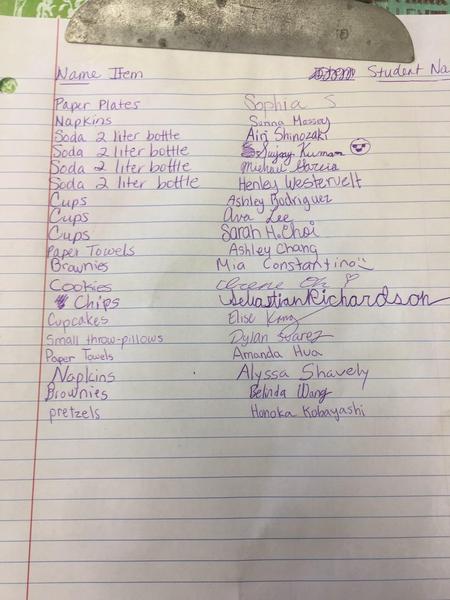 Name Item Student Na
Paper Plates Sophia S
Napkins Sunna Massay
Soda 2 liter bottle Airi Shinozaki
Soda 2 liter bottle Sujay Kumar
Soda 2 liter bottle Michael Garcia
Soda 2 liter bottle Henley Westervelt
Cups Ashley Rodriguez
Cups Ava Lee
Cups Sarah H. Choi
Paper Towels Ashley Chang
Brownies Mia Constantino
Cookies
Chips Sebastian Richardson
Cupcakes Elise Kang
Small throw-pillows Dylan Suarez
Paper Towels Amanda Hua
Napkins Alyssa Shavely
Brownies Belinda Wang
pretzels Honoka Kobayashi